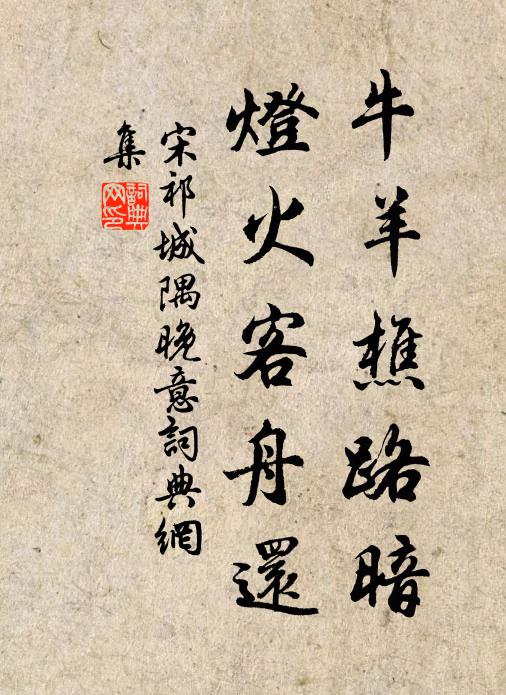 牛羊樵路暗
燈火客舟還
宋祁城隅晚意詞典網
集
詞典
网印